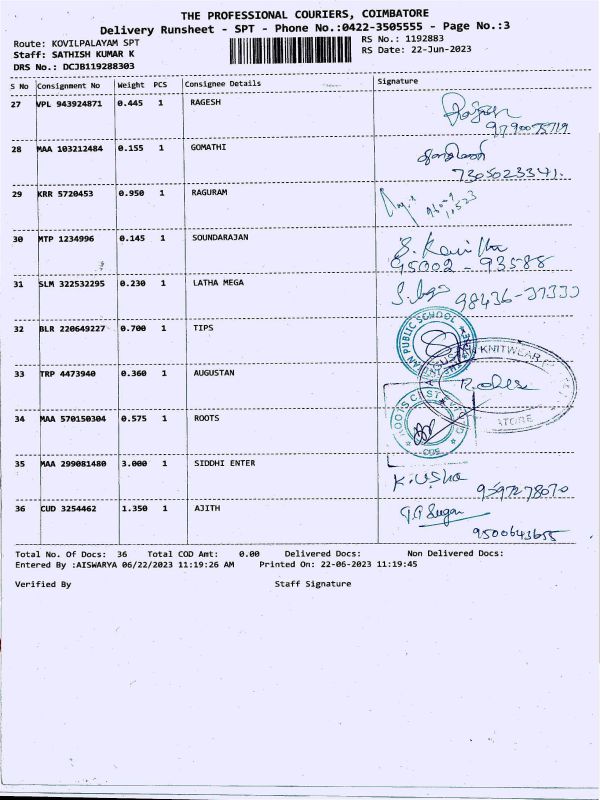 THE PROFESSIONAL COURIERS, COIMBATORE
Delivery Runsheet - SPT - Phone No.:0422-3505555 - Page No.:3
Route: KOVILPALAYAM SPT
RS No.: 1192883
Staff: SATHISH KUMAR K
RS Date: 22-Jun-2023
DRS No.: DCJB119288303
S No Consignment No Weight PCS Consignee Details Signature
27 VPL 943924871 0.445 1 RAGESH
9790075719
28 MAA 103212484 0.155 1 GOMATHI
7305023341.
29 KRR 5720453 0.950 1 RAGURAM
30 MTP 1234996 0.145 1 SOUNDARAJAN
95002 - 93588
31 SLM 322532295 0.230 1 LATHA MEGA
32 BLR 220649227 0.700 1 TIPS
PUBLIC SCHOOL
KNITWEAR
33 TRP 4473940 0.360 1 AUGUSTAN
STORE
34 MAA 570150304 0.575 1 ROOTS
ROOTS CAST
CBE
35 MAA 299081480 3.000 1 SIDDHI ENTER K. Usha
36 CUD 3254462 1.350 1 AJITH
9500643655
Total No. Of Docs: 36 Total COD Amt: 0.00 Delivered Docs: Non Delivered Docs:
Entered By :AISWARYA 06/22/2023 11:19:26 AM Printed On: 22-06-2023 11:19:45
Verified By Staff Signature